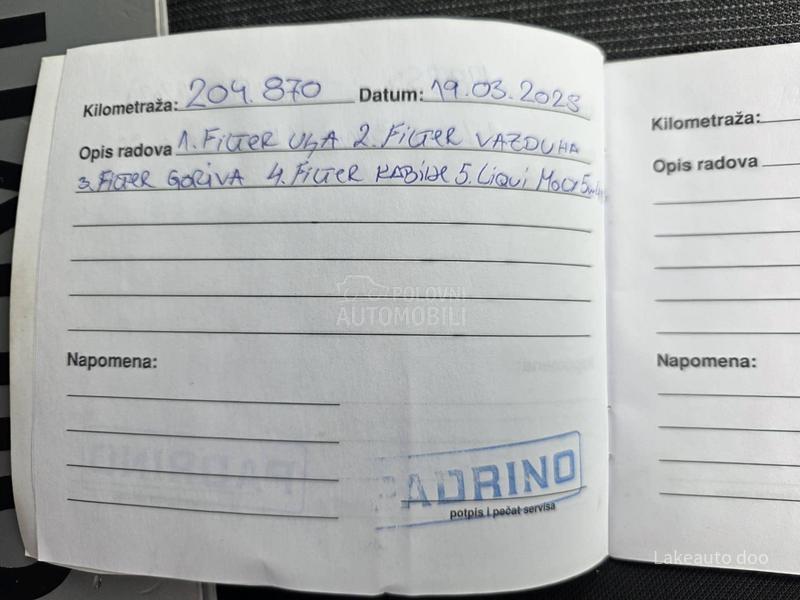 Kilometraža: 204.870 Datum: 19.03.2023
Opis radova 1. FILTER ULJA 2. FILTER VAZDUHA
3. FILTER GORIVA 4. FILTER KABINE 5. LIQUI MOLY
POLOVNI
AUTOMOBILI
Napomena:
PADRINO
potpis i pečat servisa
Kilometraža:
Opis radova
Napomena:
Lakeauto doo